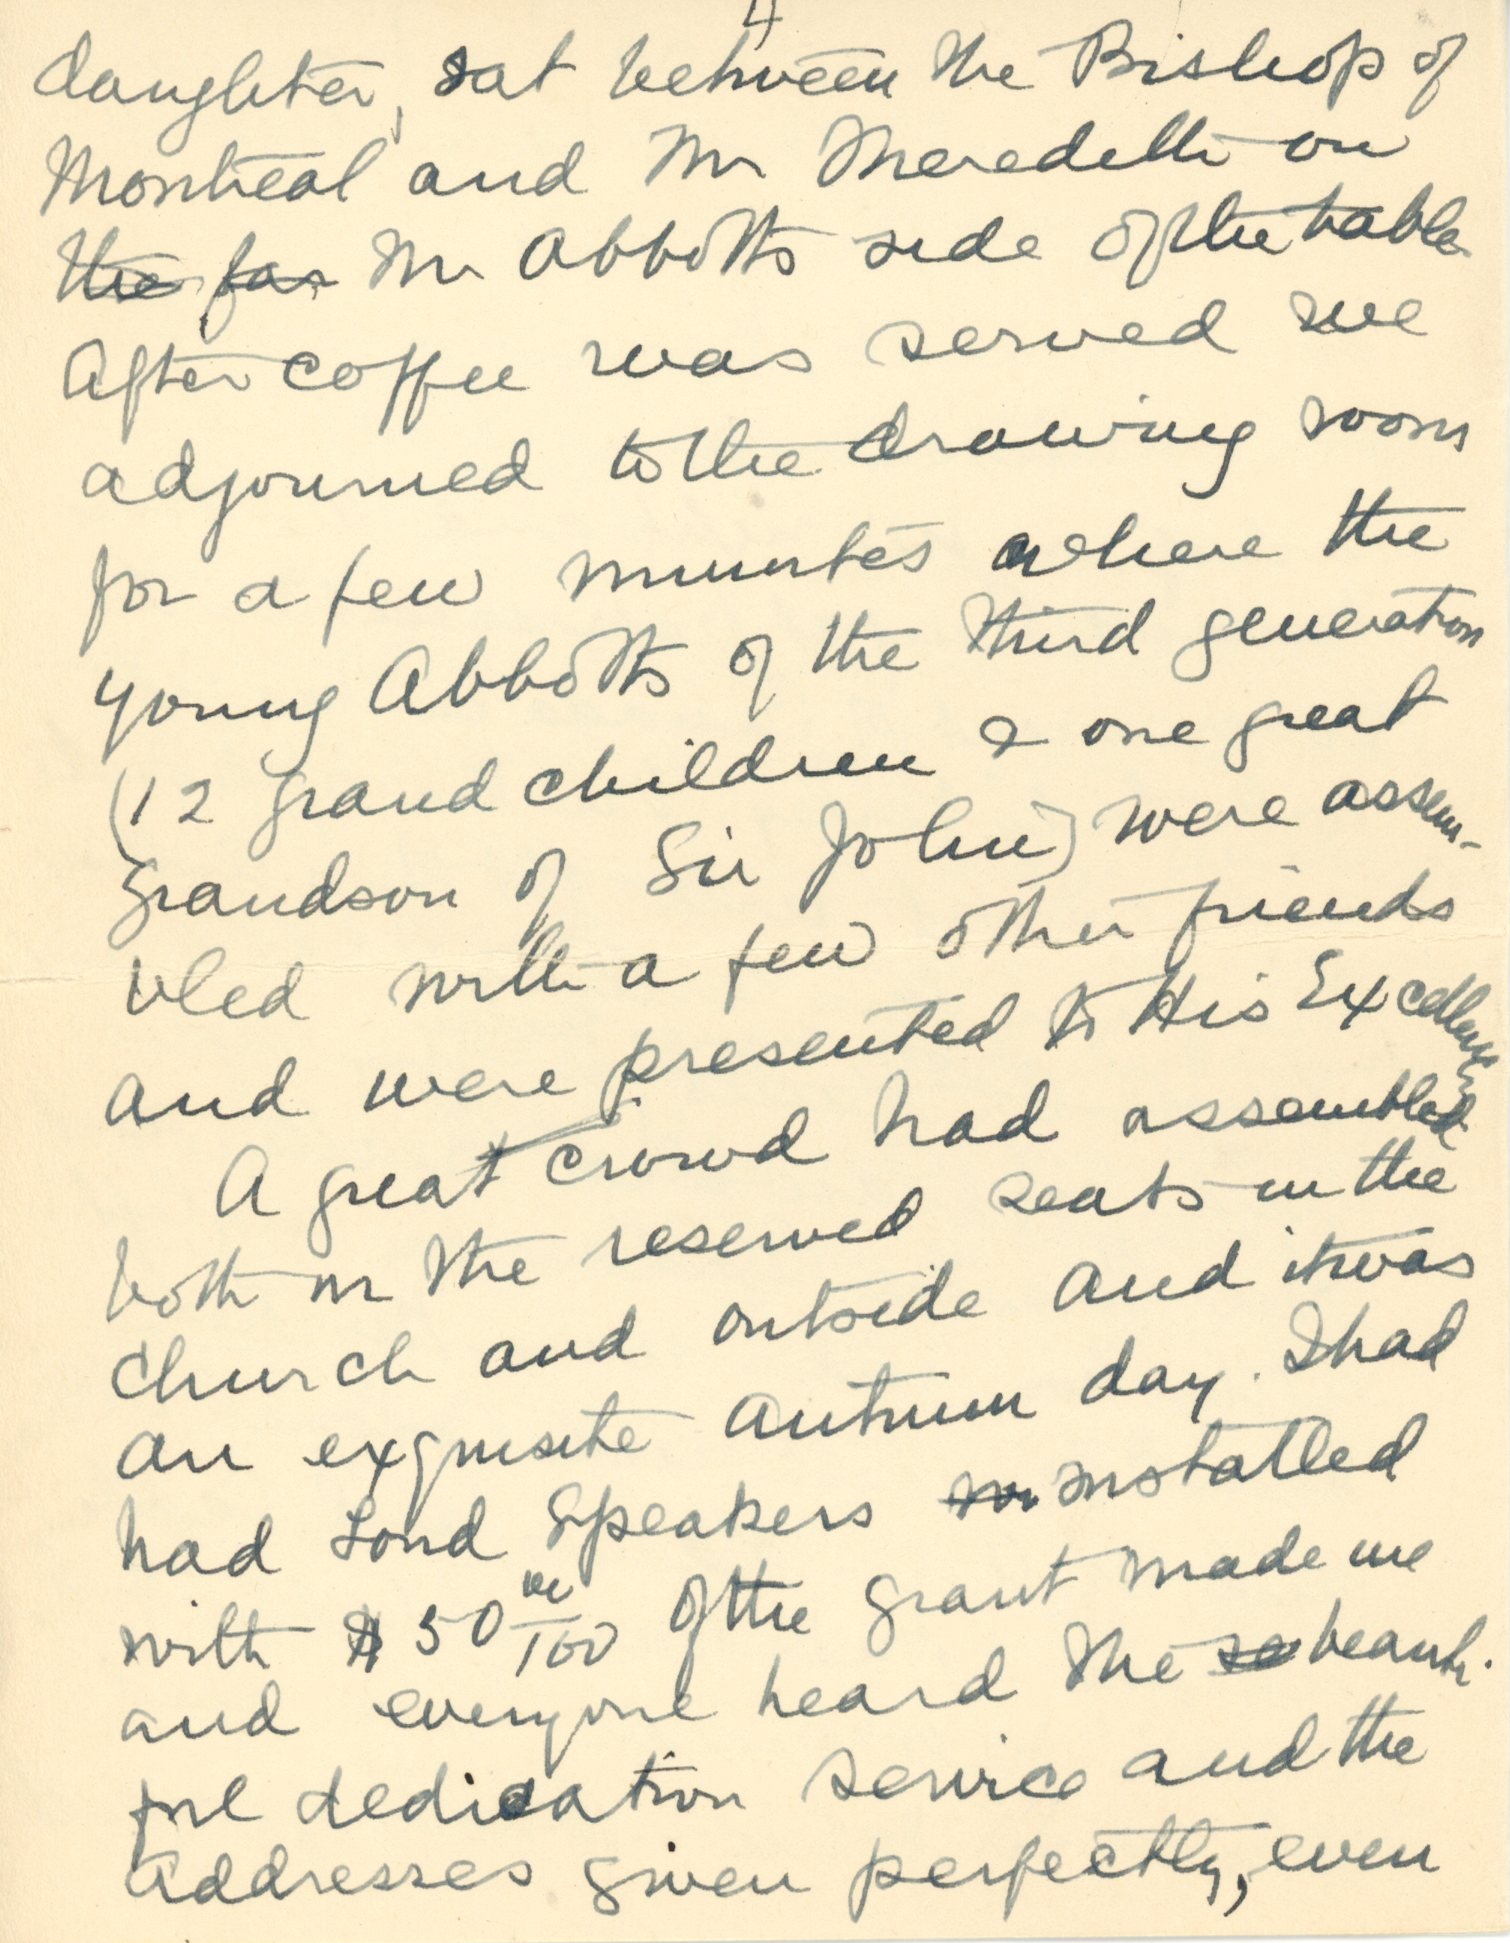 4
daughter, sat between the Bishop of
Montreal and Mr Meredith on
the far Mr Abbotts side of the table
After coffee was served we
adjourned to the drawing room
for a few minutes where the
young Abbotts of the third generation
(12 grand children & one great
grandson of Sir John) were assem-
bled with a few other friends
and were presented to His Excellency
A great crowd had assembled
both in the reserved seats in the
church and outside and it was
an exquisite autumn day. I had
had Loud Speakers in installed
with $50 00/100 of the grant made me
and everyone heard the se beauti-
ful dedication service and the
addresses given perfectly, even